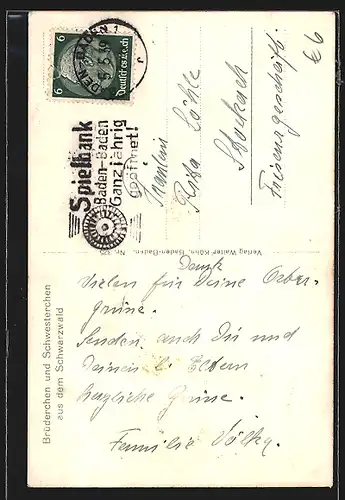 €6
6 Deutsches Reich 6
BADEN-BADEN
Spielbank
Baden-Baden
Ganzjährig
geöffnet!
Fräulein
Rosa Löhle
Stockach
Friseurgeschäft.
Verlag Walter Köhn, Baden-Baden. Nr.
Brüderchen und Schwesterchen
aus dem Schwarzwald
Vielen Dank für Deine Oster-
grüsse.
Senden auch Dir und
Deinen l. Eltern
herzliche Grüsse.
Familie Völky.